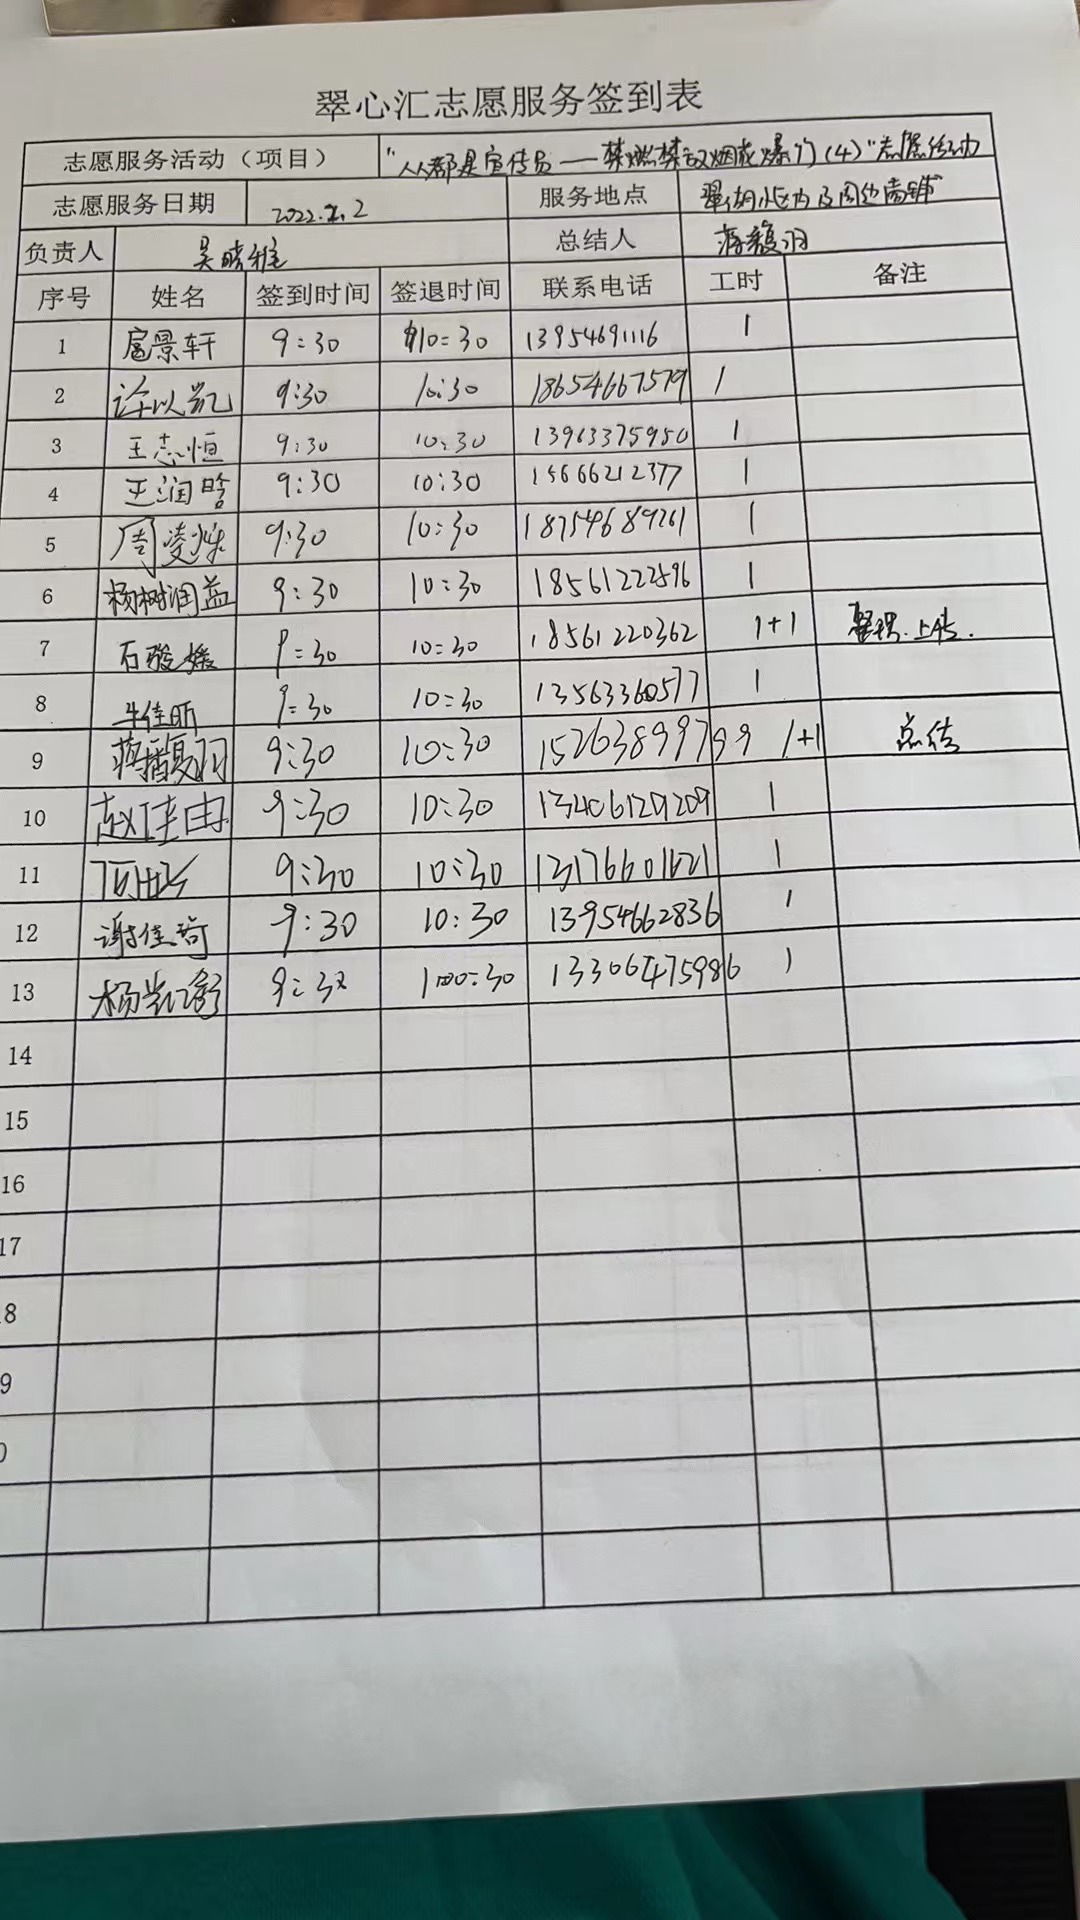 翠心汇志愿服务签到表
志愿服务活动（项目） "人人都是宣传员——禁燃禁放烟花爆竹(4)"志愿活动
志愿服务日期 2022.2.2 服务地点 翠湖小区内及周边商铺
负责人 吴晓雅 总结人 蒋馥羽
序号 姓名 签到时间 签退时间 联系电话 工时 备注
1 扈景轩 9:30 10:30 13954691116 1
2 许以凯 9:30 10:30 18654667579 1
3 王志恒 9:30 10:30 13963375950 1
4 王润晗 9:30 10:30 15666212377 1
5 周凌烁 9:30 10:30 18754689261 1
6 杨树润益 9:30 10:30 18561222596 1
7 石骏媛 9:30 10:30 18561220362 1+1 整理.上传.
8 牛佳昕 9:30 10:30 13563360577 1
9 蒋馥羽 9:30 10:30 15263899799 1+1 总结
10 赵佳由 9:30 10:30 13406129209 1
11 9:30 10:30 13176601621 1
12 谢佳琦 9:30 10:30 13954662836 1
13 杨凯舒 9:30 10:30 13306475986 1
14
15
16
17
8
9
0